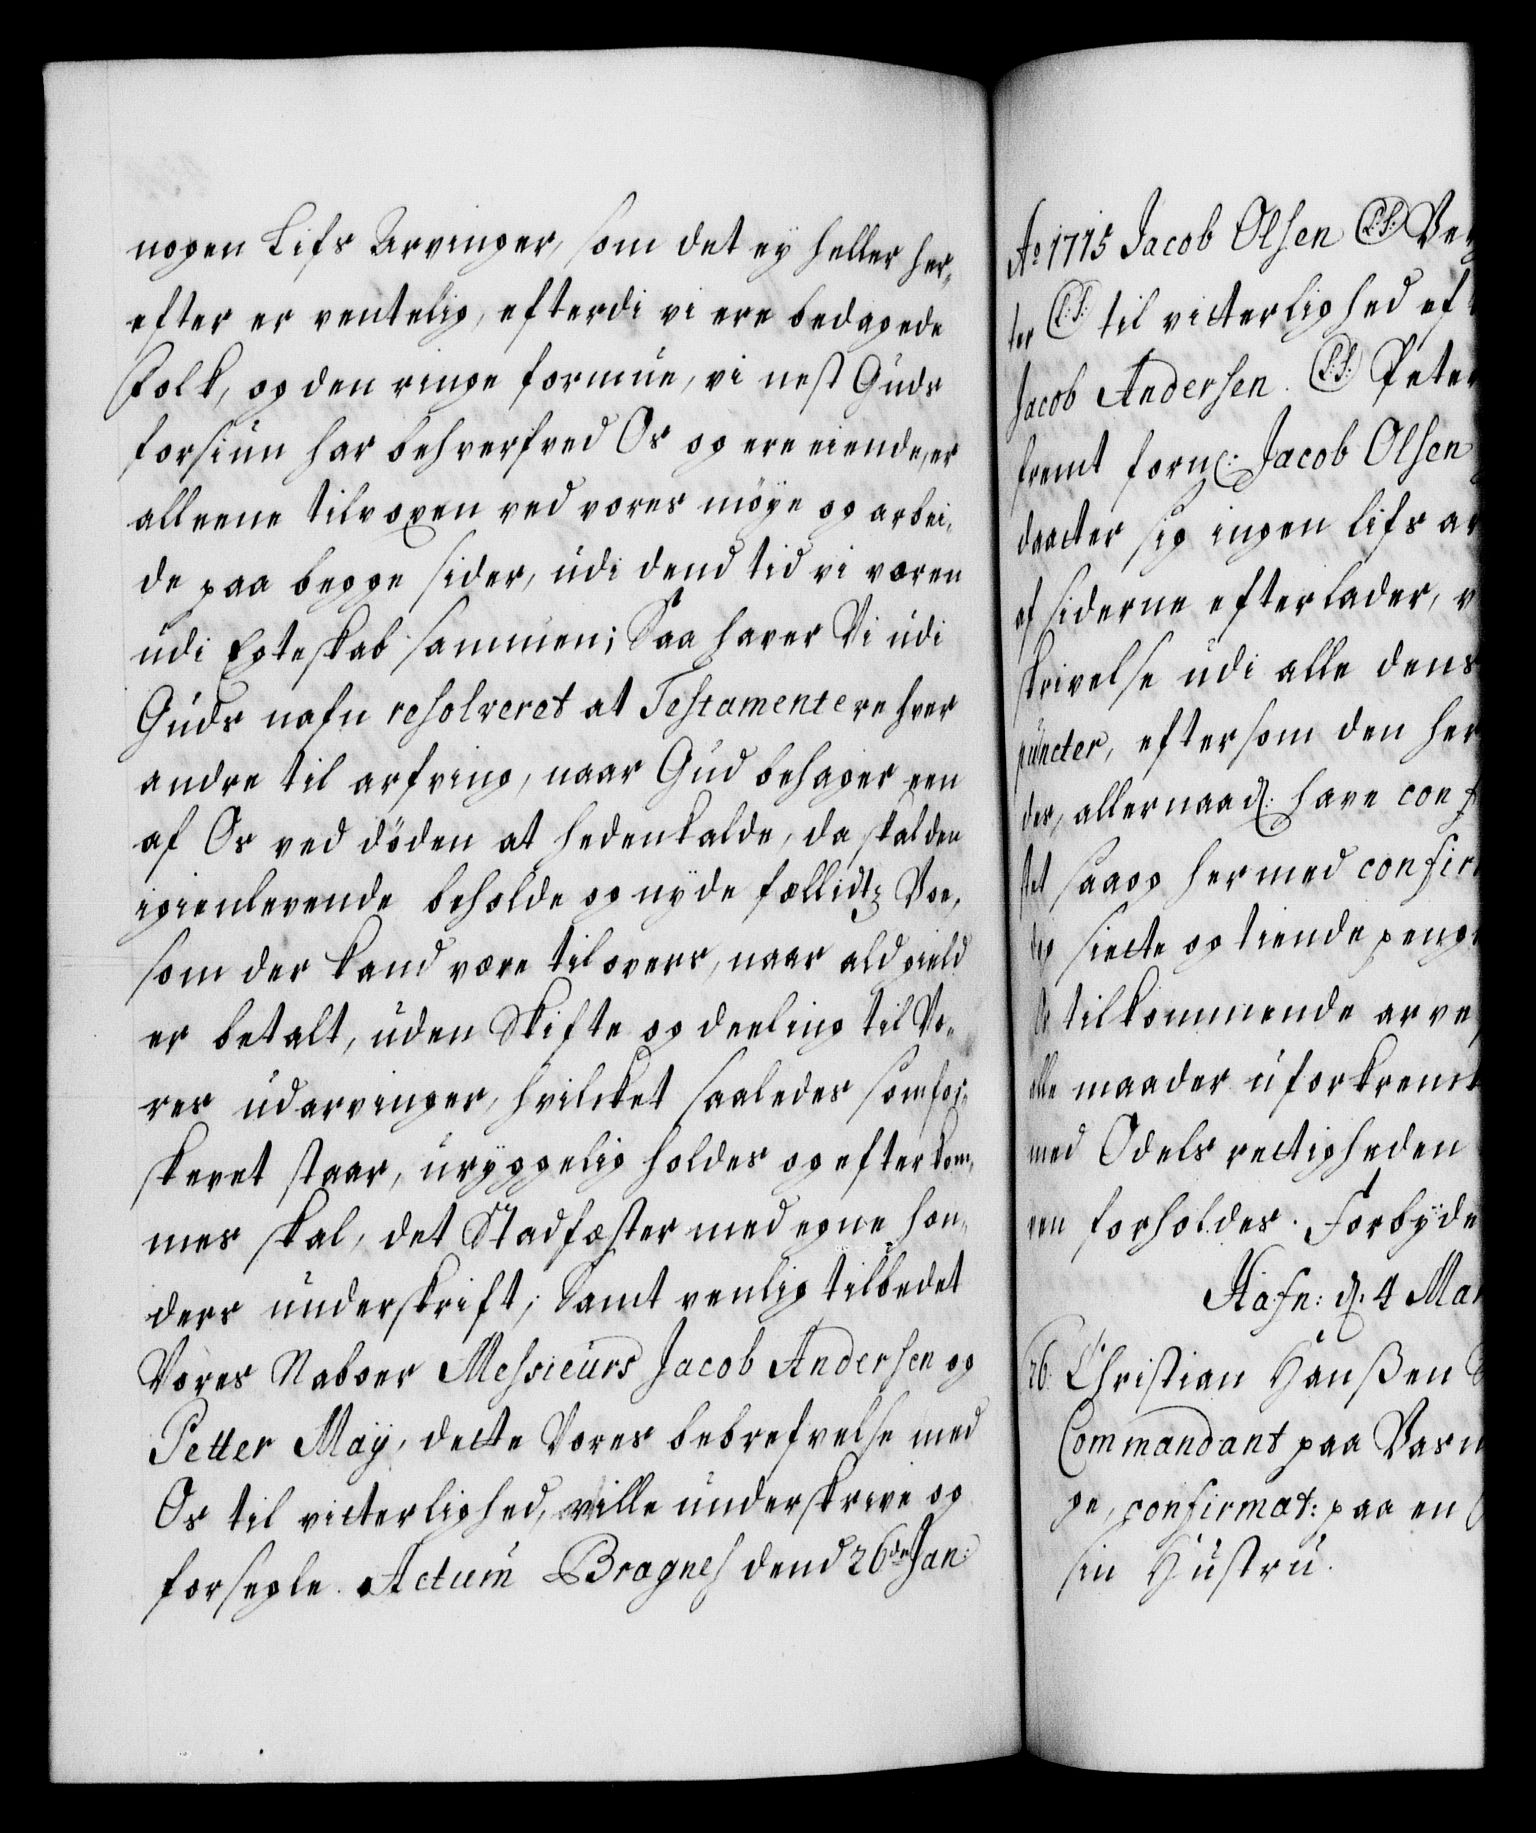 nogen Lifs Arvinger, som det ey heller her-
efter er ventelig, efterdi vi ere bedagede
Folk, og den ringe formue, vi nest Guds
forsiun har behverfved Os og ere eiende, er
alleene tilvoxen ved vores möye og arbei-
de paa begge sider, udi dend tid vi væren
udi Egteskab sammen; Saa haver Vi udi
Guds nafn resolveret at Testamentere hver
andre til arfving, naar Gud behager een
af Os ved döden at hedenkalde, da skal den
igienlevende beholde og nyde fællidtz Boe,
som der kand være tilovers, naar ald gield
er betalt, uden Skifte og deeling til Vo-
res udarvinger, hvilcket saaledes som for-
skrevet staar, uryggelig holdes og efterkom-
mes skal, det Stadfæster med egne hæn-
ders underskrift; Samt venlig tilbedet
Vores Naboer Messieurs Jacob Andersen og
Petter May, dette Vores bebrefvelse med
Os til vitterlighed, ville underskrive og
forsegle. Actum Bragnes dend 26de Jan:
Ao 1715 Jacob Olsen (L.S.)
ter (L.S.) til vitterlighed ef
Jacob Andersen. (L.S.) Peter
fremt forne: Jacob Olsen
daatter sig ingen lifs ar
af siderne efterlader, v
skrivelse udi alle dens
puncter, eftersom den her
des, allernaad: have conf
tet saa og hermed confir
siette og tiende peng
tilkommende arve
alle maader uforkrenk
med Odels rettigheden
een forholdes. Forbyde
Hafn: d. 4 Mar
26. Christian Hanßen
Commandant paa Vasn
ge, confirmat: paa en
sin Hustru.